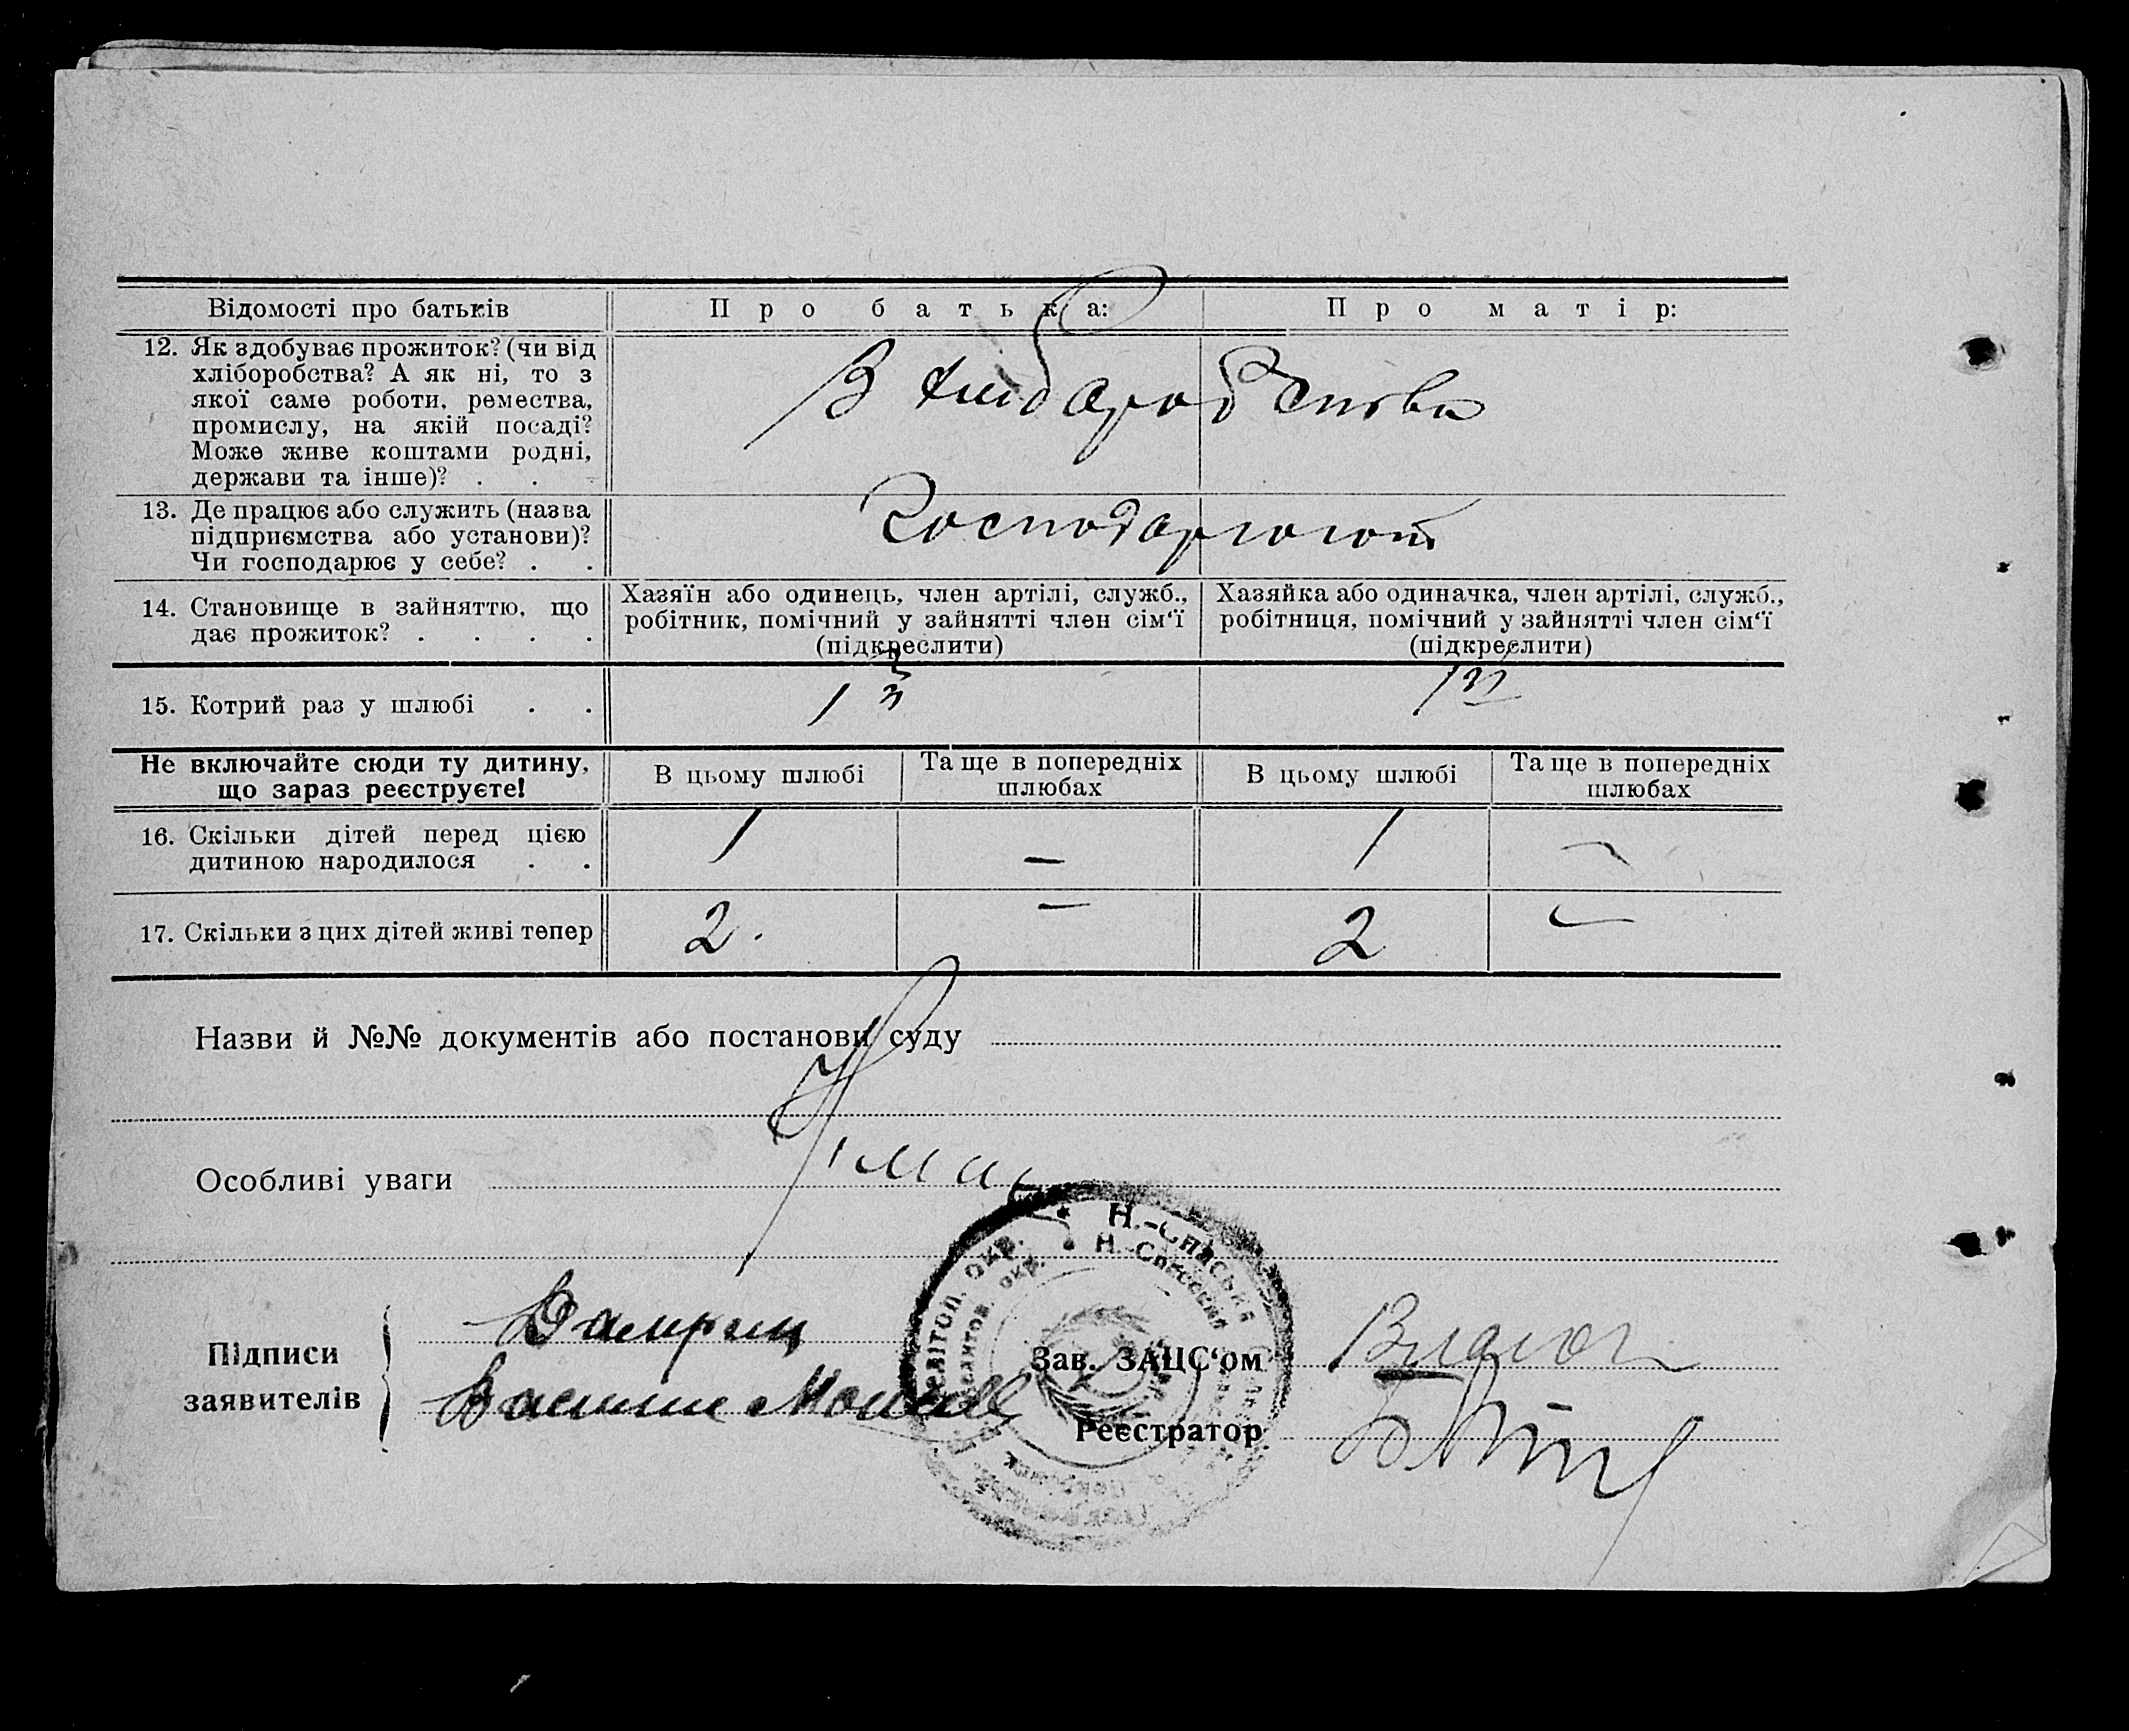 Відомості про батьків
Про батька:
Про матір:
12. Як здобуває прожиток? (чи від
хліборобства? А як ні, то з
якої саме роботи, ремества,
промислу, на якій посаді?
Може живе коштами родні,
держави та інше)? . .
В хлібаробства
13. Де працює або служить (назва
підприємства або установи)?
Чи господарює у себе? . .
Господарюют
14. Становище в зайняттю, що
дає прожиток? . . . .
Хазяїн або одинець, член артілі, служб.,
робітник, помічний у зайнятті член сім‘ї
(підкреслити)
Хазяйка або одиначка, член артілі, служб.,
робітниця, помічний у зайнятті член сім‘ї
(підкреслити)
15. Котрий раз у шлюбі . .
1й
1й
Не включайте сюди ту дитину,
що зараз реєструєте!
В цьому шлюбі
Та ще в попередніх
шлюбах
В цьому шлюбі
Та ще в попередніх
шлюбах
16. Скільки дітей перед цією
дитиною народилося . .
1 — 1 —
17. Скільки з цих дітей живі тепер
2. — 2 —
Назви й №№ документів або постанови суду
Особливі уваги
Німає
Н.-Спаська
Мелітоп. окр.
Н. Спасский
Мелитов. окр.
Підписи
заявителів
Зав. ЗАЦС‘ом
Реєстратор